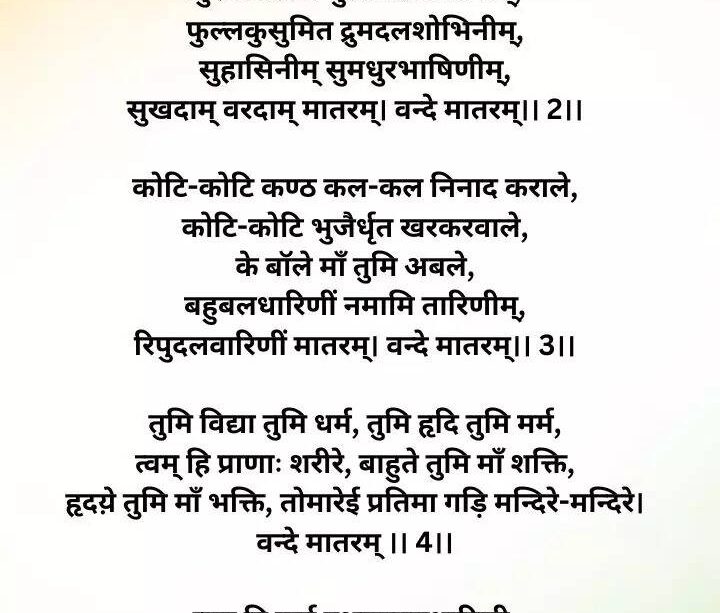 फुल्लकुसुमित द्रुमदलशोभिनीम्,
सुहासिनीम् सुमधुरभाषिणीम्,
सुखदाम् वरदाम् मातरम्। वन्दे मातरम्।। 2।।
कोटि-कोटि कण्ठ कल-कल निनाद कराले,
कोटि-कोटि भुजैर्धृत खरकरवाले,
के बॉले माँ तुमि अबले,
बहुबलधारिणीं नमामि तारिणीम्,
रिपुदलवारिणीं मातरम्। वन्दे मातरम्।। 3।।
तुमि विद्या तुमि धर्म, तुमि हृदि तुमि मर्म,
त्वम् हि प्राणाः शरीरे, बाहुते तुमि माँ शक्ति,
हृदय़े तुमि माँ भक्ति, तोमारेई प्रतिमा गड़ि मन्दिरे-मन्दिरे।
वन्दे मातरम् ।। 4।।